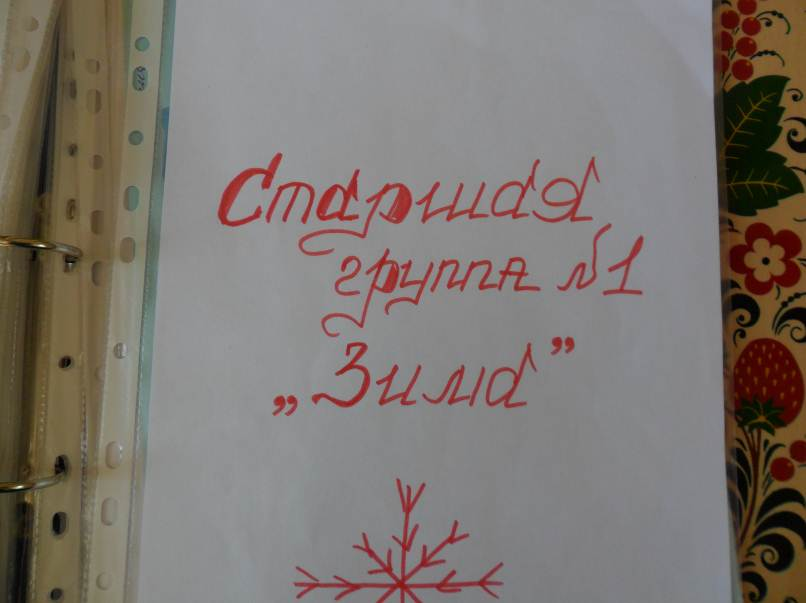 Старшая
группа №1
„Зима”